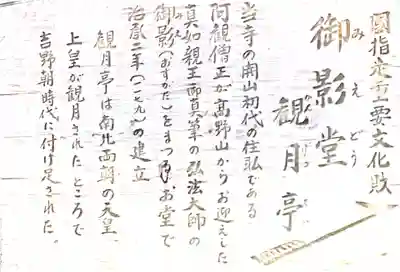 國指定重要文化財
御影堂
みえどう
観月亭
当寺の開山初代の住職である
阿観僧正が高野山からお迎えした
真如親王御真筆の弘法大師の
御影(おすがた)をまつるお堂で
治承二年(一一七九)の建立
観月亭は南北両朝の天皇、
上皇が観月されたところで
吉野朝時代に付け足された。